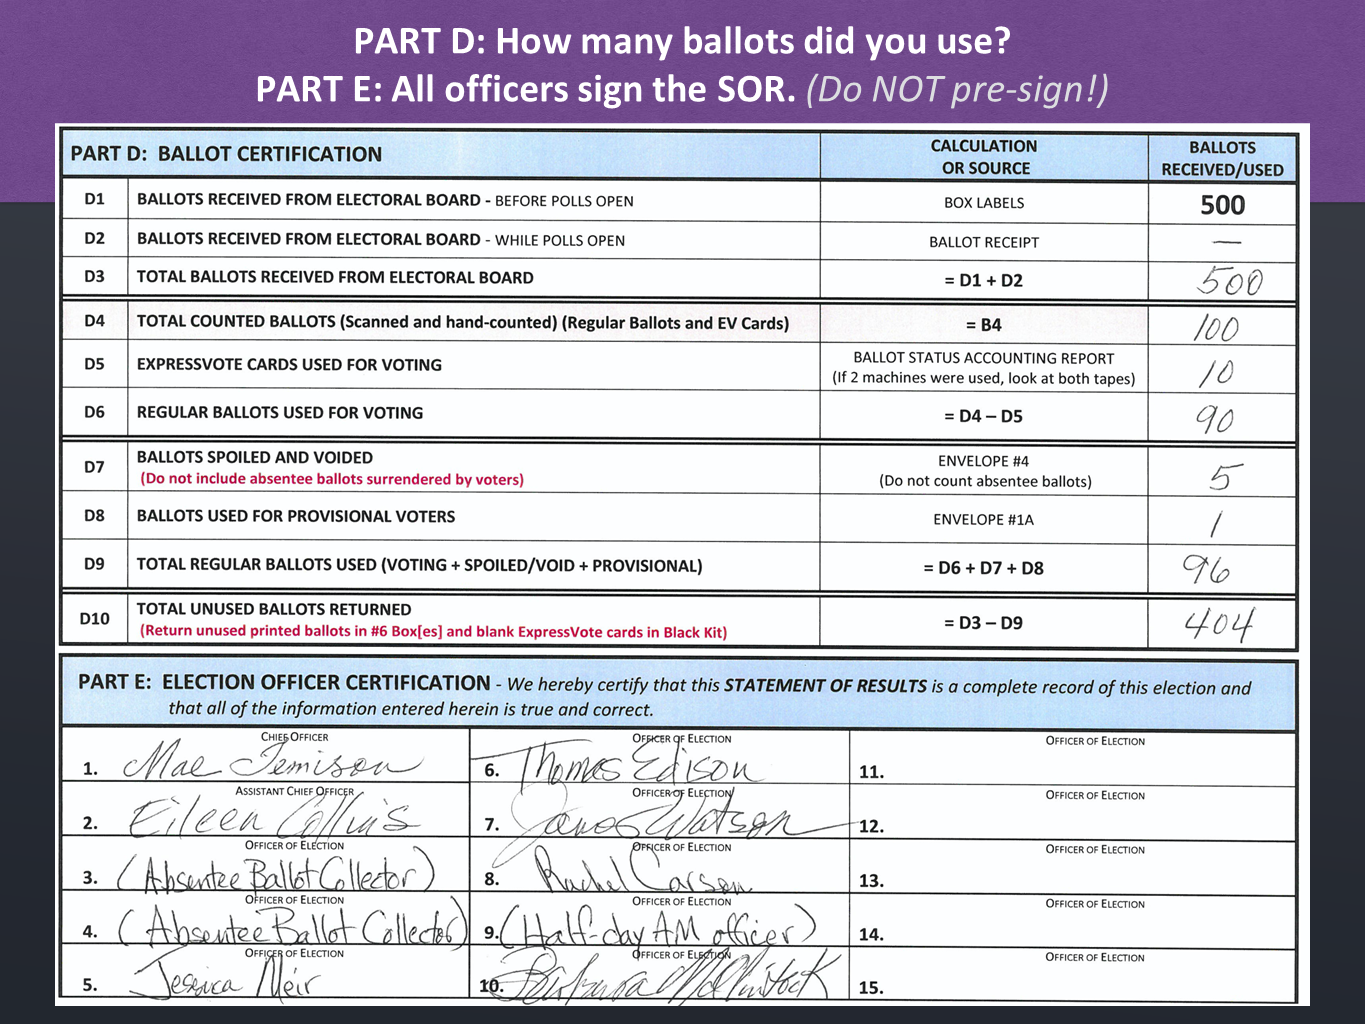 PART D: How many ballots did you use?
PART E: All officers sign the SOR. (Do NOT pre-sign!)
PART D: BALLOT CERTIFICATION CALCULATION OR SOURCE BALLOTS RECEIVED/USED
D1 BALLOTS RECEIVED FROM ELECTORAL BOARD - BEFORE POLLS OPEN BOX LABELS 500
D2 BALLOTS RECEIVED FROM ELECTORAL BOARD - WHILE POLLS OPEN BALLOT RECEIPT —
D3 TOTAL BALLOTS RECEIVED FROM ELECTORAL BOARD = D1 + D2 500
D4 TOTAL COUNTED BALLOTS (Scanned and hand-counted) (Regular Ballots and EV Cards) = B4 100
D5 EXPRESSVOTE CARDS USED FOR VOTING BALLOT STATUS ACCOUNTING REPORT
(If 2 machines were used, look at both tapes) 10
D6 REGULAR BALLOTS USED FOR VOTING = D4 – D5 90
D7 BALLOTS SPOILED AND VOIDED ENVELOPE #4
(Do not include absentee ballots surrendered by voters) (Do not count absentee ballots) 5
D8 BALLOTS USED FOR PROVISIONAL VOTERS ENVELOPE #1A 1
D9 TOTAL REGULAR BALLOTS USED (VOTING + SPOILED/VOID + PROVISIONAL) = D6 + D7 + D8 96
D10 TOTAL UNUSED BALLOTS RETURNED = D3 – D9 404
(Return unused printed ballots in #6 Box[es] and blank ExpressVote cards in Black Kit)
PART E: ELECTION OFFICER CERTIFICATION - We hereby certify that this STATEMENT OF RESULTS is a complete record of this election and
that all of the information entered herein is true and correct.
CHIEF OFFICER OFFICER OF ELECTION OFFICER OF ELECTION
1. Mae Jemison 6. Thomas Edison 11.
ASSISTANT CHIEF OFFICER OFFICER OF ELECTION OFFICER OF ELECTION
2. Eileen Collins 7. James Watson 12.
OFFICER OF ELECTION OFFICER OF ELECTION OFFICER OF ELECTION
3. (Absentee Ballot Collector) 8. Rachel Carson 13.
OFFICER OF ELECTION OFFICER OF ELECTION OFFICER OF ELECTION
4. (Absentee Ballot Collector) 9. (Half-day AM officer) 14.
OFFICER OF ELECTION OFFICER OF ELECTION OFFICER OF ELECTION
5. Jessica Meir 10. Barbara McClintock 15.